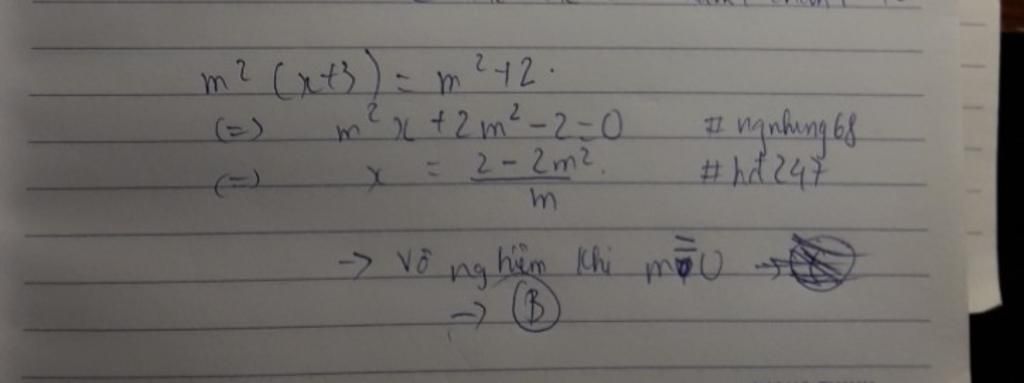 m² (x+3) = m²+2.
(=) m²x + 2m² - 2 = 0 # ngnhung68
(=) x = (2 - 2m²)/m # hđ247
→ Vô nghiệm khi m = 0 →
→ B